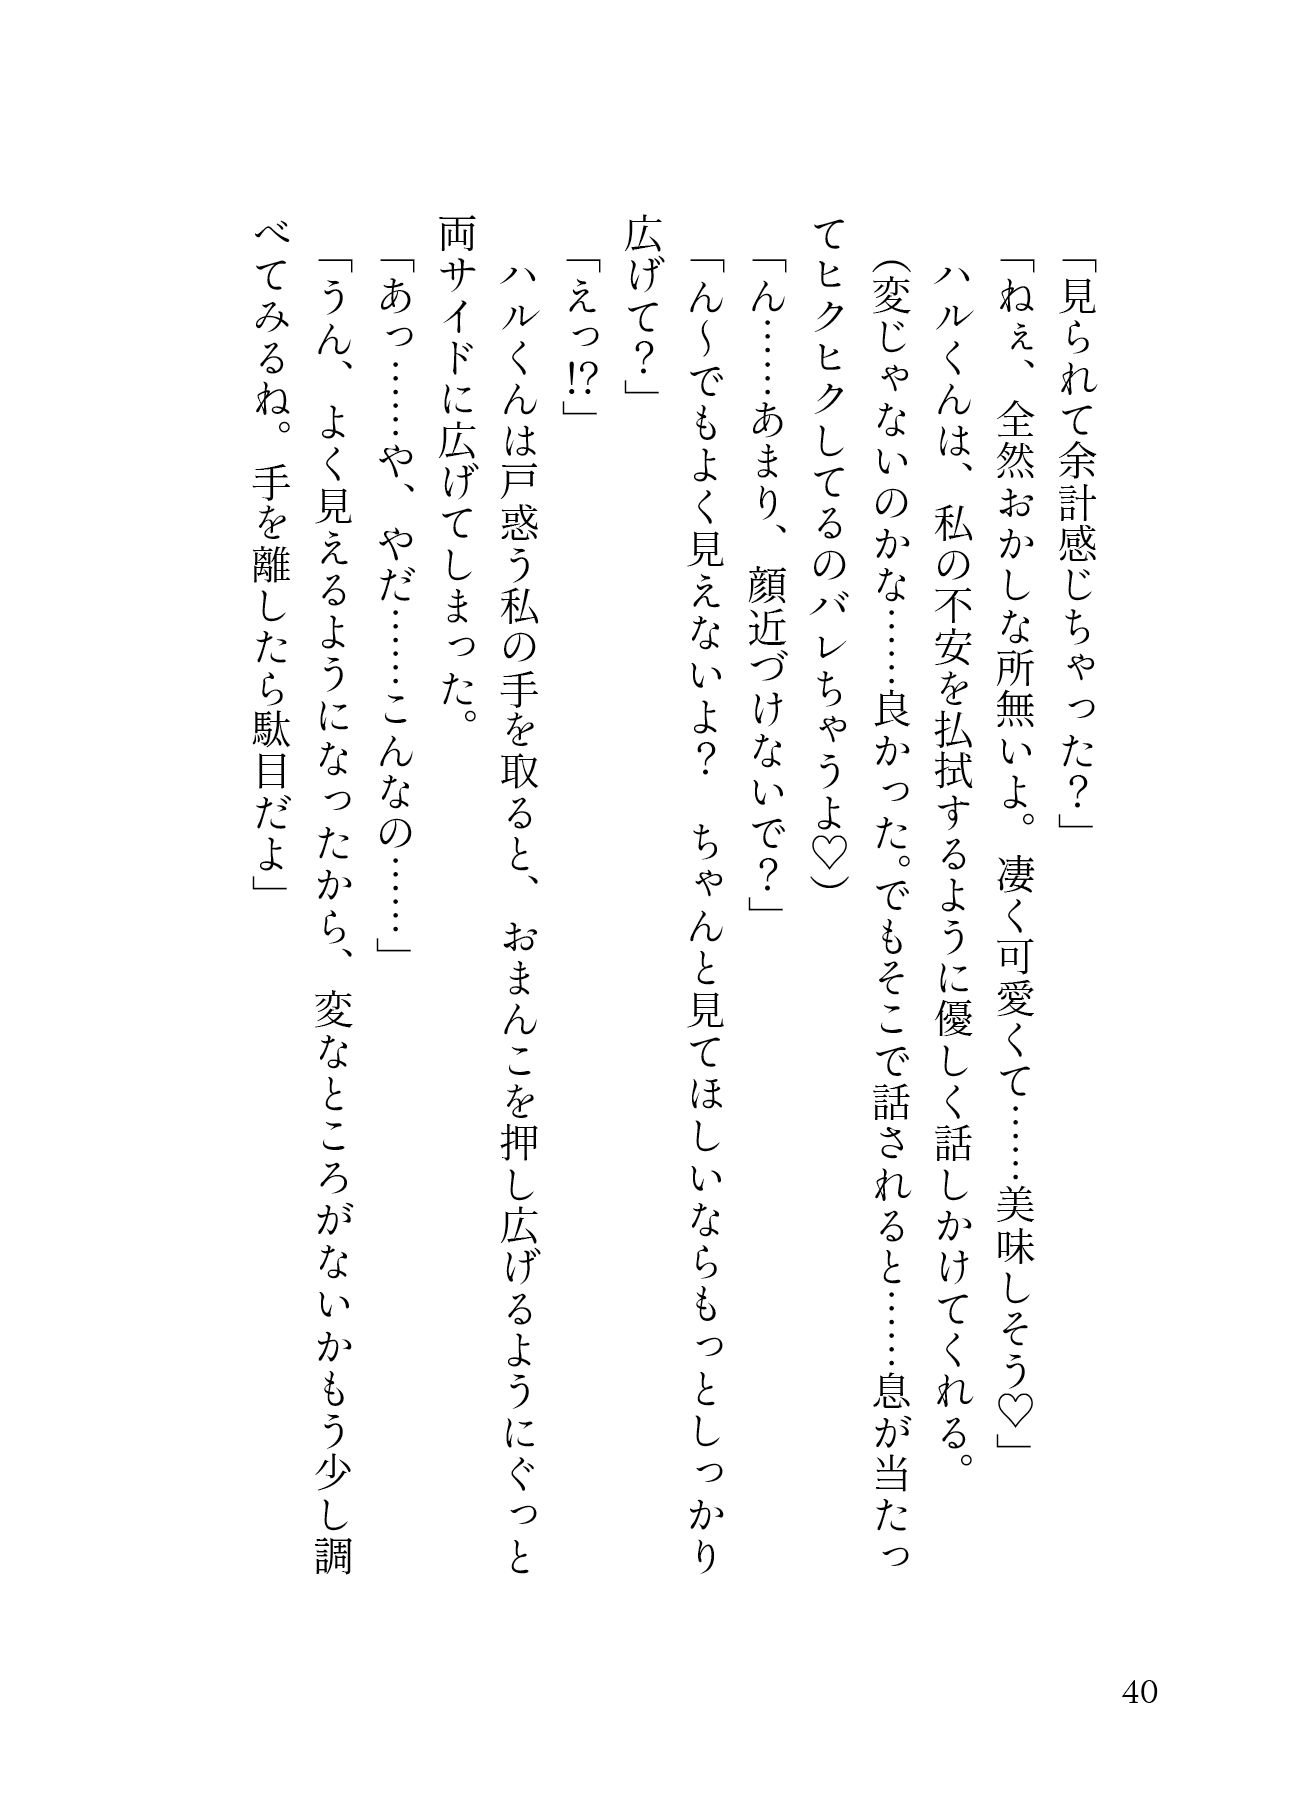 「見られて余計感じちゃった？」
「ねぇ、全然おかしな所無いよ。凄く可愛くて……美味しそう♡」
ハルくんは、私の不安を払拭するように優しく話しかけてくれる。
（変じゃないのかな……良かった。でもそこで話されると……息が当たっ
てヒクヒクしてるのバレちゃうよ♡）
「ん……あまり、顔近づけないで？」
「ん～でもよく見えないよ？　ちゃんと見てほしいならもっとしっかり
広げて？」
「えっ⁉」
ハルくんは戸惑う私の手を取ると、おまんこを押し広げるようにぐっと
両サイドに広げてしまった。
「あっ……や、やだ……こんなの……」
「うん、よく見えるようになったから、変なところがないかもう少し調
べてみるね。手を離したら駄目だよ」
40